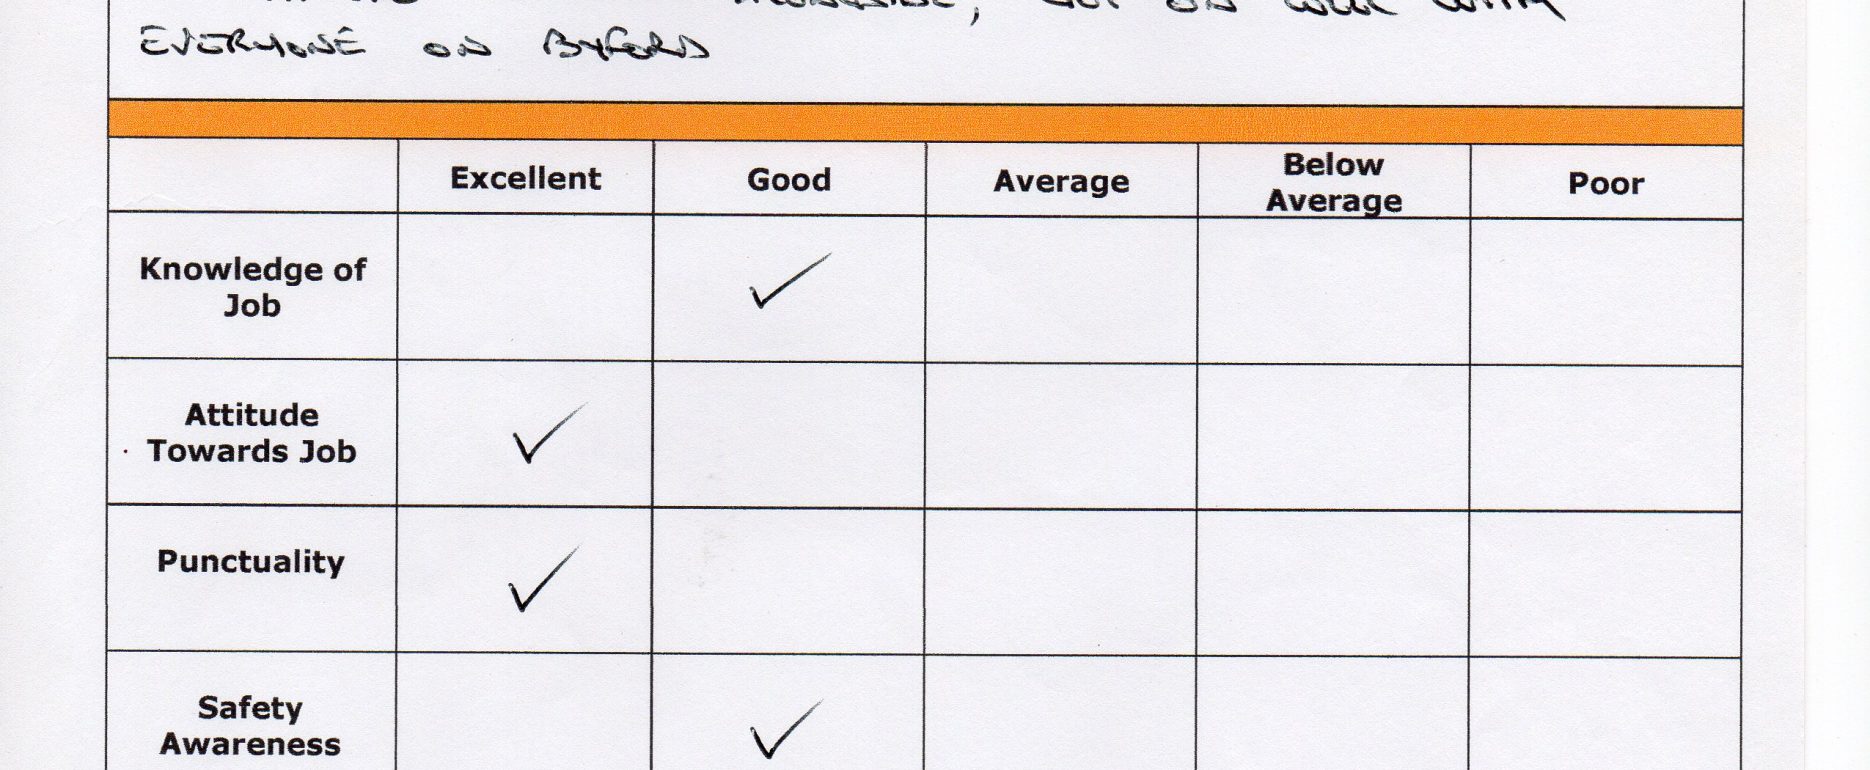 ALONGSIDE, GOT ON WELL WITH
EVERYONE ON BYFORD
Excellent Good Average Below Average Poor
Knowledge of
Job
Attitude
Towards Job
Punctuality
Safety
Awareness